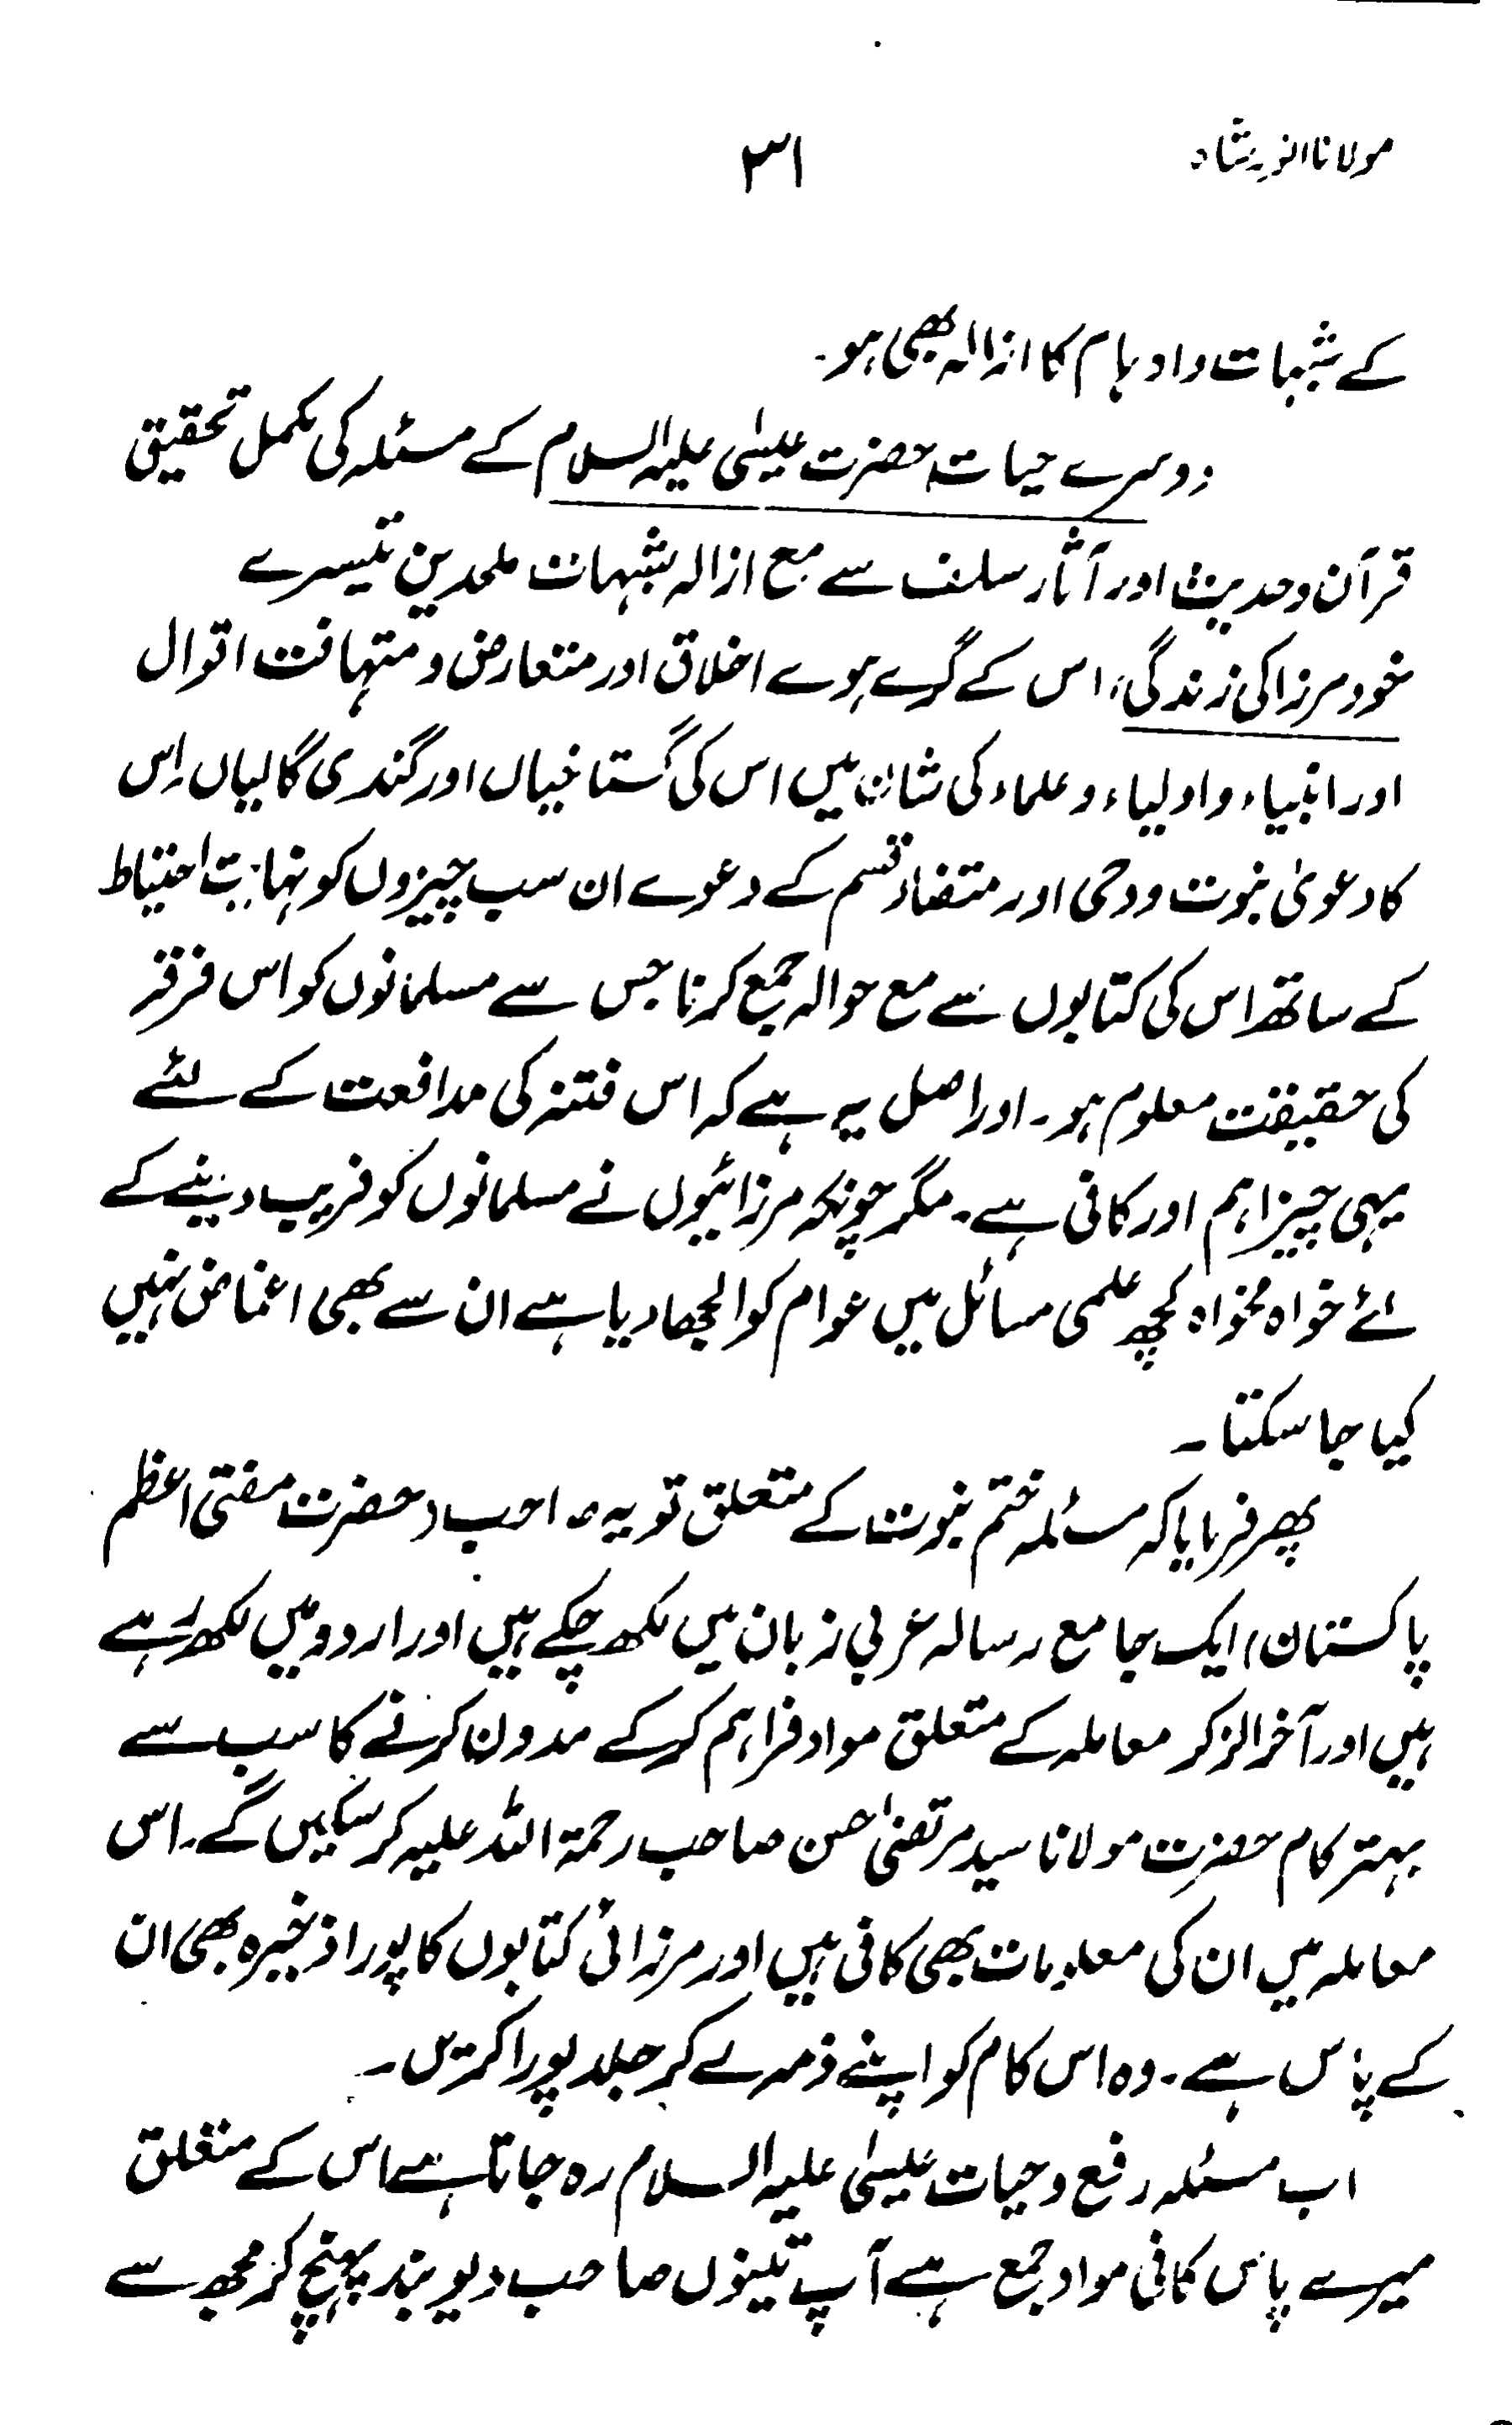 مولانا انور شاہ
۳۱
کے شبہات و اوہام کا ازالہ بھی ہو۔
دوسرے حیات حضرت عیسٰی علیہ السلام کے مسئلہ کی مکمل تحقیق
قرآن و حدیث اور آثار سلف سے مع ازالہ شبہات ملحدین تیسرے
خود مرزا کی زندگی، اس کے گرے ہوے اخلاق اور متعارض و متہافت اقوال
اور انبیاء و اولیاء و علماء کی شان میں اس کی گستاخیاں اور گندی گالیاں اِس
کا دعویٰ نبوت و وحی اور متضاد قسم کے دعوے ان سب چیزوں کو نہایت احتیاط
کے ساتھ اس کی کتابوں سے مع حوالہ جمع کرنا جس سے مسلمانوں کو اس فرقہ
کی حقیقت معلوم ہو۔ اور اصل یہ ہے کہ اس فتنہ کی مدافعت کے لئے
یہی چیز اہم اور کافی ہے۔ مگر چونکہ مرزائیوں نے مسلمانوں کو فریب دینے کے
لئے خواہ مخواہ کچھ علمی مسائل میں عوام کو الجھا دیا ہے ان سے بھی اغماض نہیں
کیا جا سکتا۔
پھر فرمایا کہ مسئلہ ختم نبوت کے متعلق تو یہ صاحب (حضرت مفتی اعظم
پاکستان) ایک جامع رسالہ عربی زبان میں لکھ چکے ہیں اور اردو میں لکھ رہے
ہیں اور آخر الزکر معاملہ کے متعلق مواد فراہم کر کے مدون کرنے کا سب سے
بہتر کام حضرت مولانا سید مرتضیٰ حسن صاحب رحمۃ اللہ علیہ کر سکیں گے۔ اس
معاملہ میں ان کی معلومات بھی کافی ہیں اور مرزائی کتابوں کا پورا ذخیرہ بھی ان
کے پاس ہے۔ وہ اس کام کو اپنے ذمہ لے کر جلد پورا کریں۔
اب مسئلہ رفع و حیات عیسٰی علیہ السلام رہ جاتا ہے اس کے متعلق
میرے پاس کافی مواد جمع ہے آپ تینوں صاحب دیوبند پہنچ کر مجھ سے